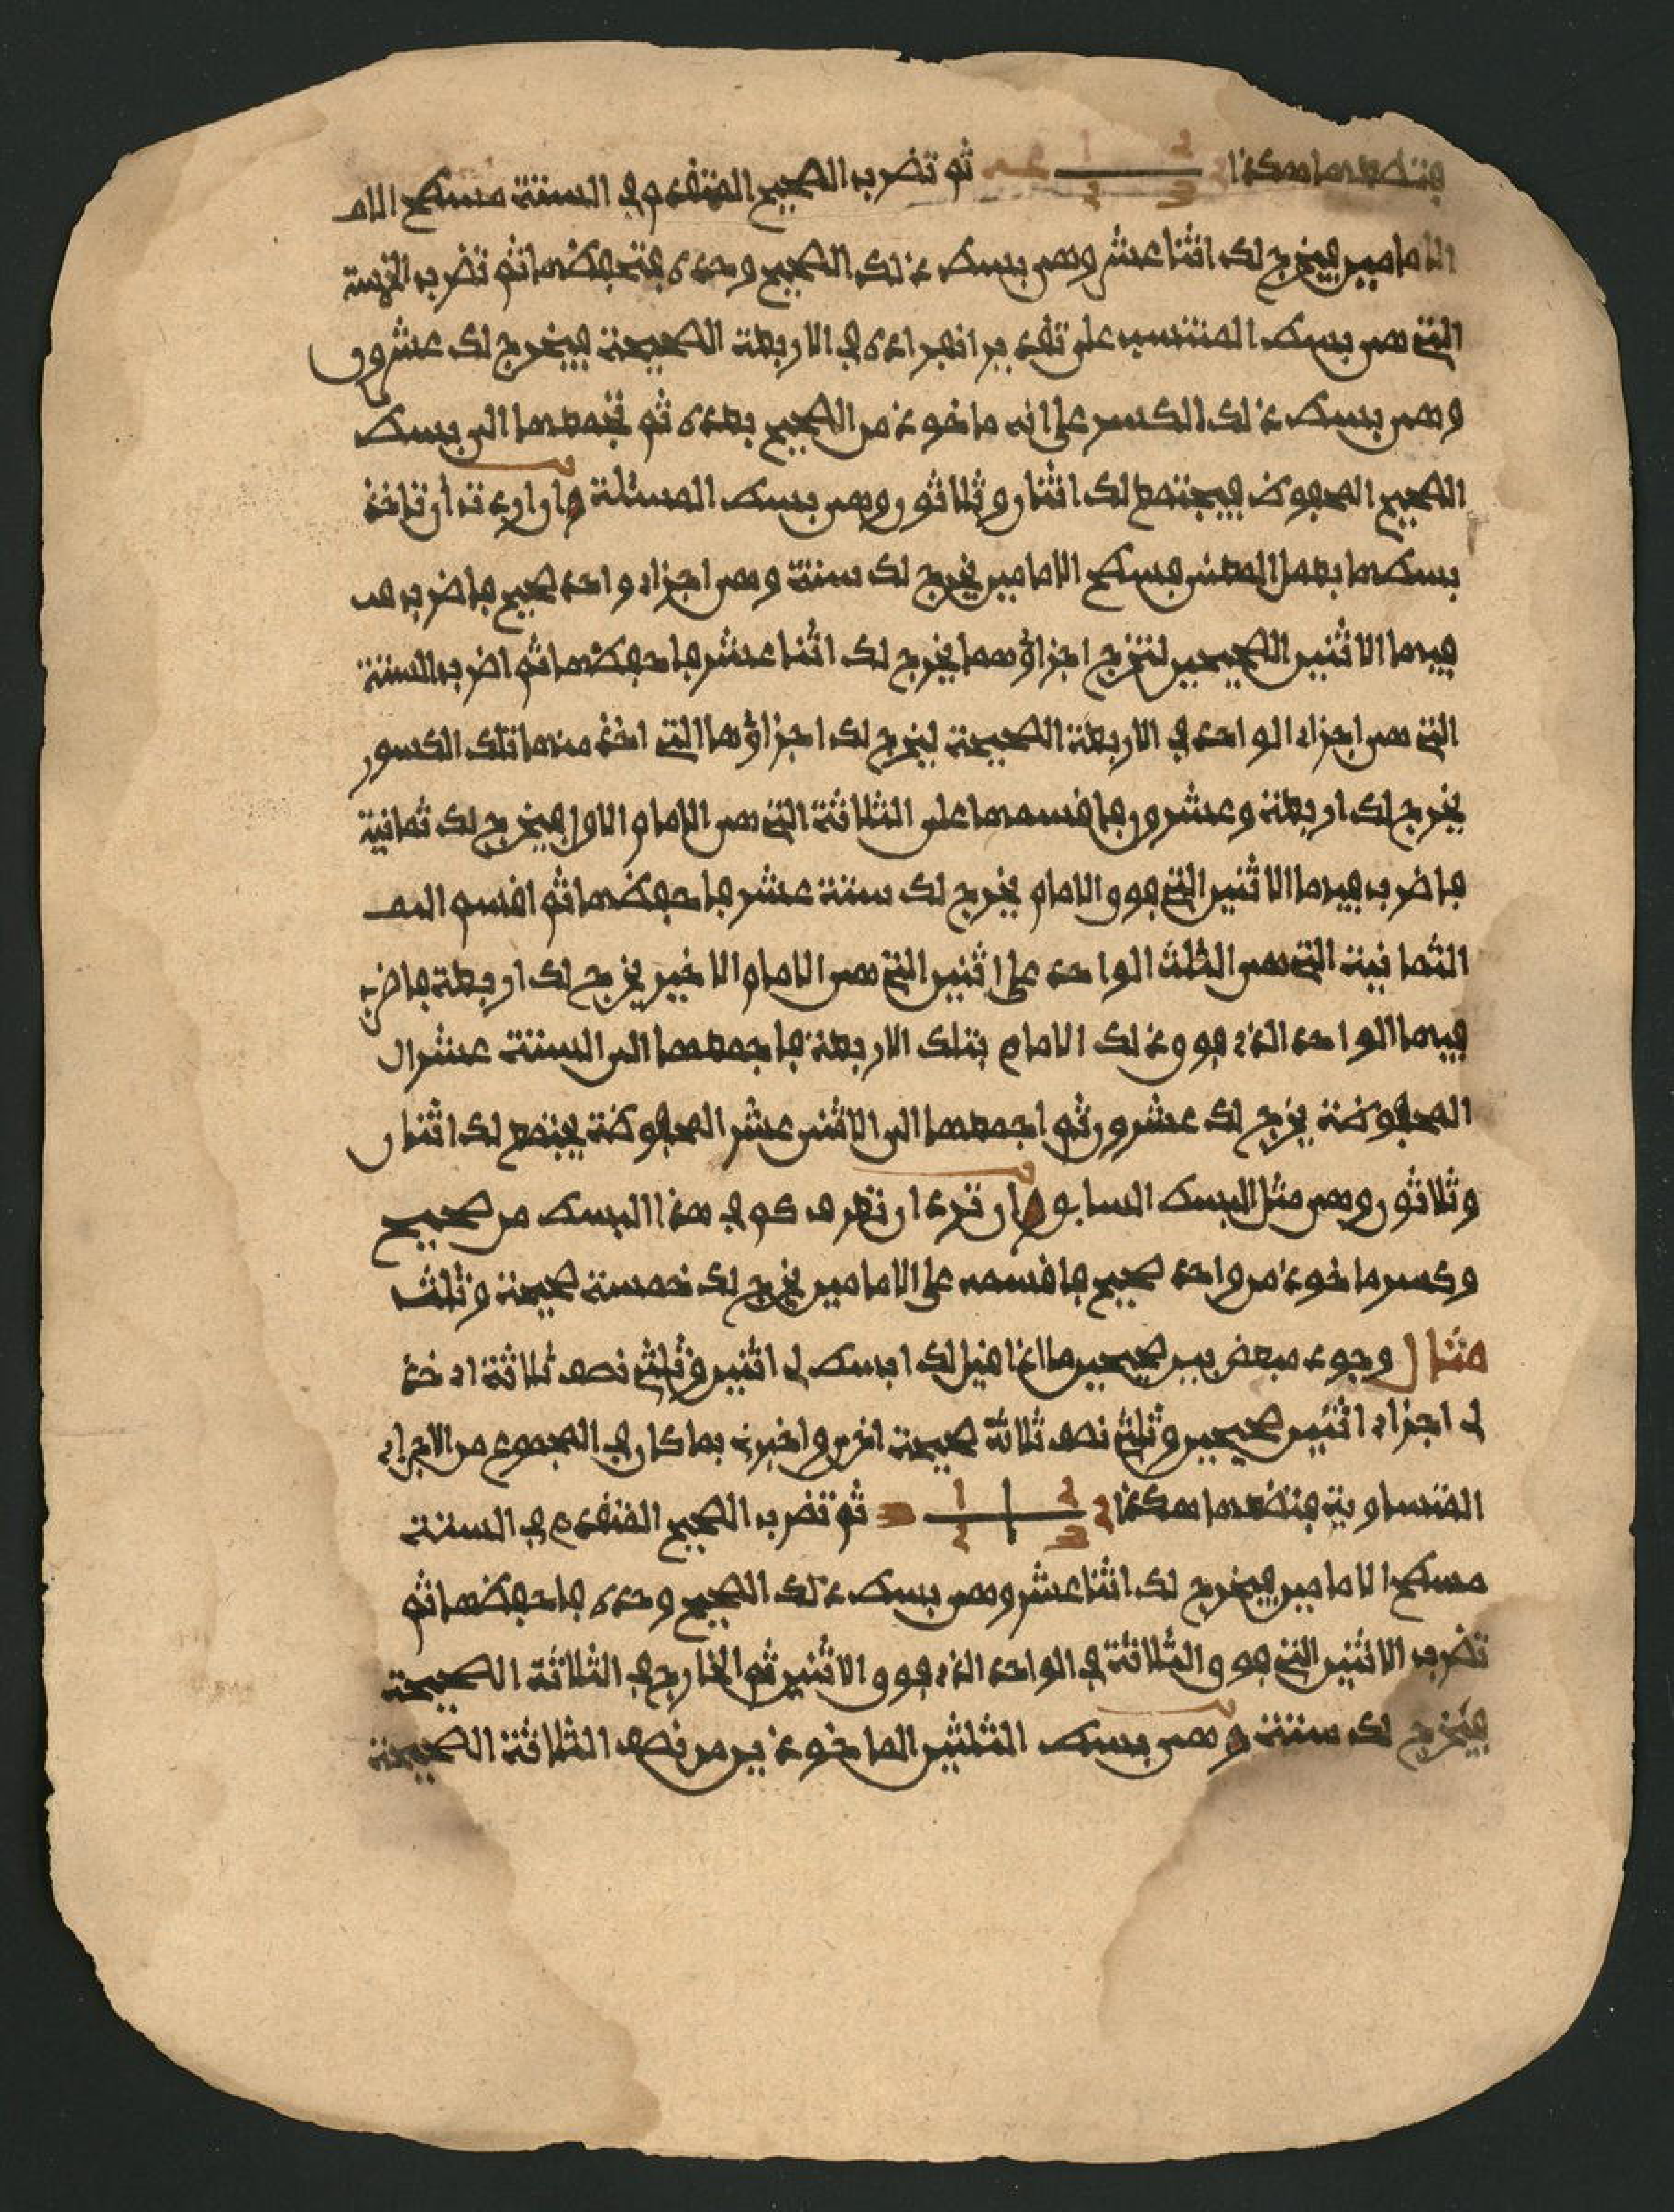 فتضعهما هكذا ثم تضرب الصحيح المتقدم في الستة مسطح الام
الامامين فيخرج لك اثنا عشر وهي بسط ذلك الصحيح وحده فتحفظها ثم تضرب الخمسة
التي هي بسط المنتسب على تقدير انفراده في الاربعة الصحيحة فيخرج لك عشرون
وهي بسط ذلك الكسر على انه ماخوذ من الصحيح بعده ثم تجمعها الى بسط
الصحيح المحفوظ فيجتمع لك اثنان وثلاثون وهي بسط المسئلة فان اردت أن تاخذ
بسطها بعمل المعنى فسطح الامامين يخرج لك ستة وهي اجزاء واحد صحيح فاضرب فيـ
فيها الاثنين الصحيحين لتخرج اجزاؤهما يخرج لك اثنا عشر فاحفظها ثم اضرب الستة
التي هي اجزاء الواحد في الاربعة الصحيحة ليخرج لك اجزاؤها التي اخذ منها تلك الكسور
يخرج لك اربعة وعشرون فاقسمها على الثلاثة التي هي الامام الاول فيخرج لك ثمانية
فاضرب فيها الاثنين التي فوق الامام يخرج لك ستة عشر فاحفظها ثم اقسم الثمـ
الثمانية التي هي الثلث الواحد على اثنين التي هي الامام الاخير يخرج لك اربعة فاضرب
فيها الواحد الذي فوق ذلك الامام بتلك الاربعة فاجمعها الى الستة عشر ال
المحفوظة يخرج لك عشرون ثم اجمعها الى الاثني عشر المحفوظة يجتمع لك اثنان
وثلاثون وهي مثل البسط السابق فان ترد ان تعرف كم في هذا البسط من صحيح
وكسر ماخوذ من واحد صحيح فاقسمه على الامامين يخرج لك خمسة صحيحة وثلث
مثال وجود مبعض بين صحيحين ما اذا قيل لك ابسط لي اثنين وثلثي نصف ثلاثة اي خذ
لي اجزاء اثنين صحيحين وثلثي نصف ثلاثة صحيحة اخرى واخبرني بما كان في المجموع من الاجزاء
المتساوية فتضعها هكذا ٢ ثم تضرب الصحيح المتقدم في الستة
مسطح الامامين فيخرج لك اثنا عشر وهي بسط ذلك الصحيح وحده فاحفظها ثم
تضرب الاثنين التي فوق الثلاثة في الواحد الذي فوق الاثنين ثم الخارج في الثلاثة الصحيحة
فيخرج لك ستة وهي بسط الثلثين الماخوذين من نصف الثلاثة الصحيحة